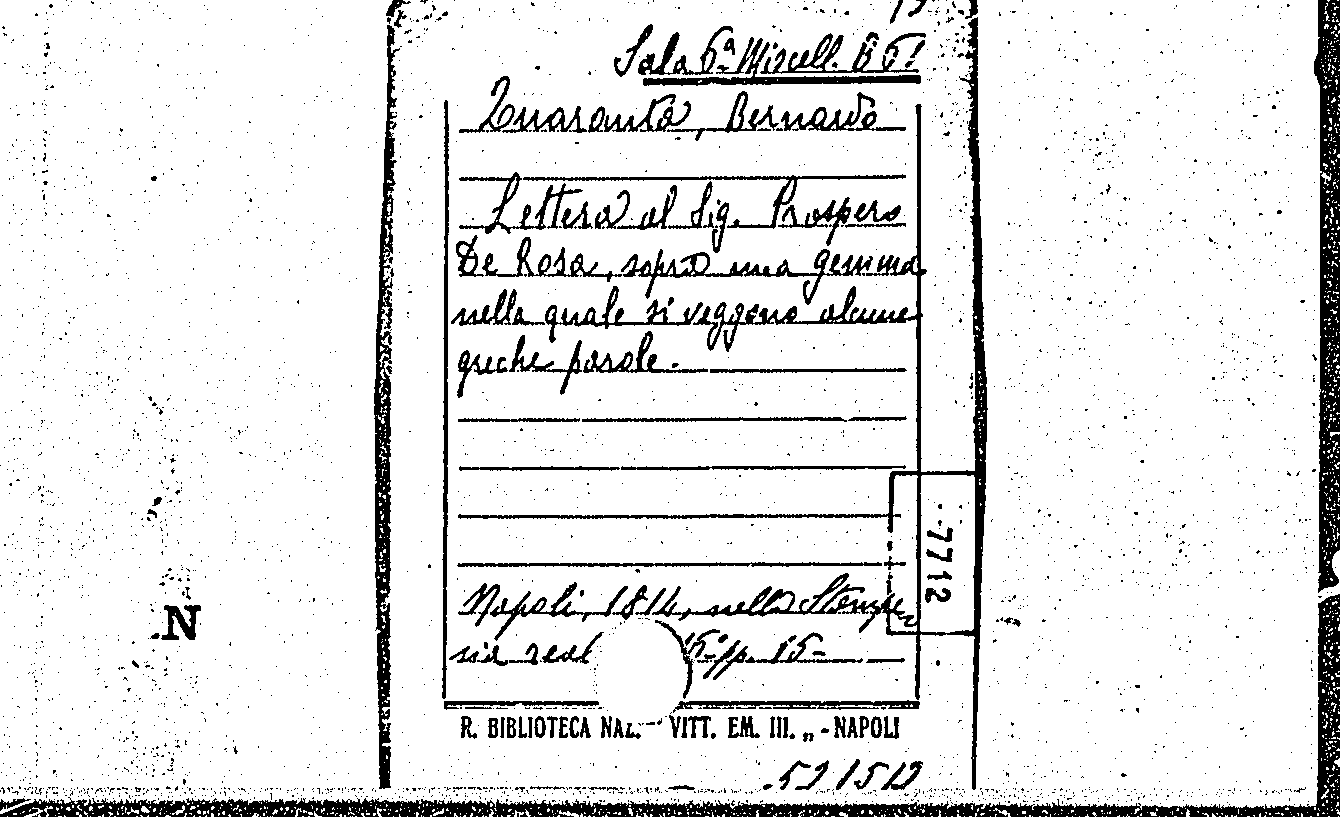 Sala 6ª Miscell. B
Quaranta, Bernardo
Lettera al Sig. Prospero
De Rosa, sopra una gemma
nella quale si veggono alcune
greche parole.
7712
Napoli, 1814, nella Stampe
ria real pp. 15-
.N
R. BIBLIOTECA NAZ. VITT. EM. III. „ - NAPOLI